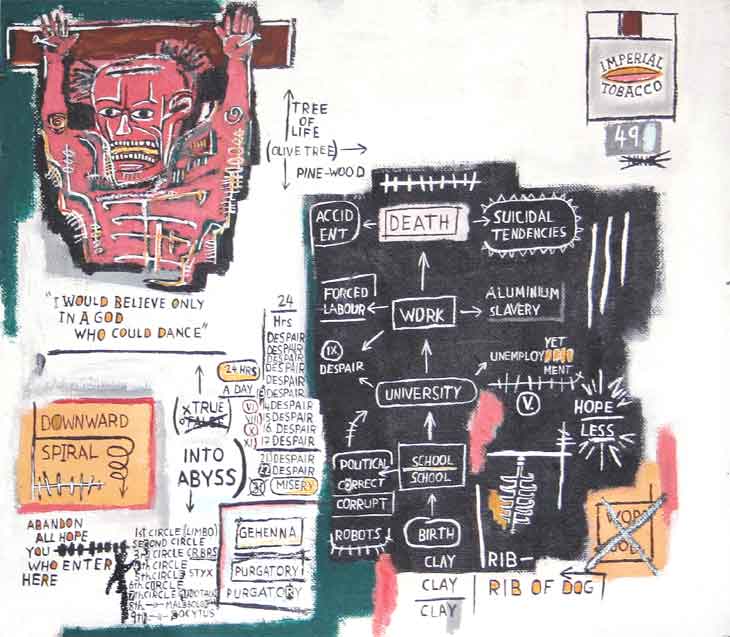 IMPERIAL
TOBACCO
49
TREE
OF
LIFE
(OLIVE TREE)
PINE-WOOD
ACCID
ENT
DEATH
SUICIDAL
TENDENCIES
"I WOULD BELIEVE ONLY
IN A GOD
WHO COULD DANCE"
FORCED
LABOUR
WORK
ALUMINIUM
SLAVERY
24
Hrs
DESPAIR
DESPAIR
DESPAIR
DESPAIR
DESPAIR
24 HRS
A DAY
14 DESPAIR
15 DESPAIR
16 DESPAIR
17 DESPAIR
21 DESPAIR
DESPAIR
MISERY
IX
DESPAIR
UNIVERSITY
YET
UNEMPLOY
MENT
V.
HOPE
LESS
X TRUE
INTO
ABYSS
DOWNWARD
SPIRAL
POLITICAL
CORRECT
CORRUPT
ROBOTS
SCHOOL
SCHOOL
BIRTH
CLAY
CLAY
CLAY
RIB
RIB OF DOG
ABANDON
ALL HOPE
YOU
WHO ENTER
HERE
1st CIRCLE (LIMBO)
SECOND CIRCLE
3rd CIRCLE
CIRCLE
5th CIRCLE STYX
6th CIRCLE
7th CIRCLE
8th
9th
GEHENNA
PURGATORY
PURGATORY